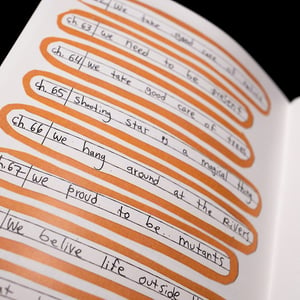 we take good care of nature
ch. 63 we need to be present
ch. 64 we take good care of trees
ch. 65 shooting star is a magical thing
ch. 66 we hang around at the Rivers
ch. 67 we proud to be mutants
We belive life outside